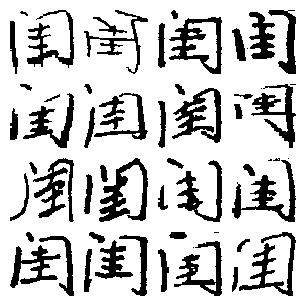 闺闺闺闺
闺闺闺闺
闺闺闺闺
闺闺闺闺